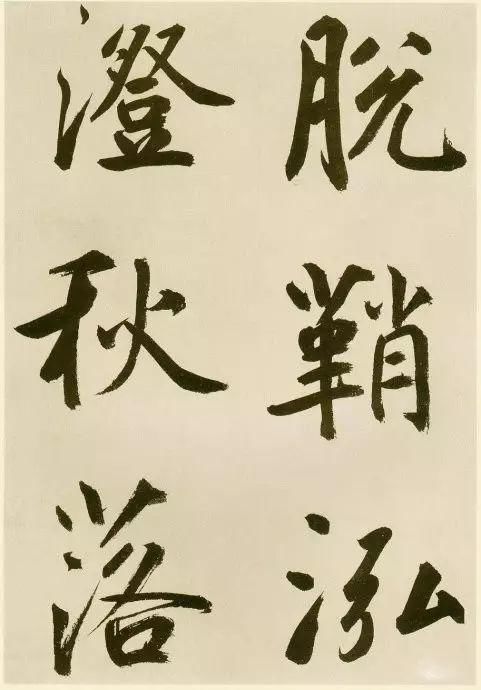 脱鞘泓
澄秋落